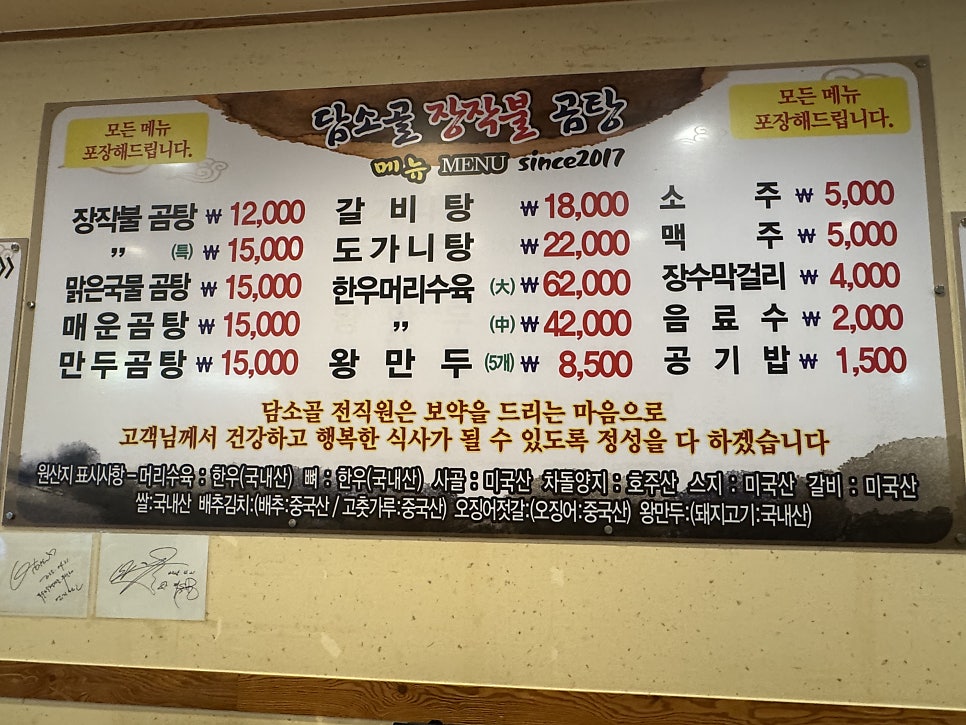 모든 메뉴
포장해드립니다.
담소골 장작불 곰탕
메뉴 MENU since2017
모든 메뉴
포장해드립니다.
장작불 곰탕 ₩ 12,000
〃 (특) ₩ 15,000
맑은국물 곰탕 ₩ 15,000
매운곰탕 ₩ 15,000
만두곰탕 ₩ 15,000
갈비탕 ₩ 18,000
도가니탕 ₩ 22,000
한우머리수육 (大) ₩ 62,000
〃 (中) ₩ 42,000
왕만두 (5개) ₩ 8,500
소주 ₩ 5,000
맥주 ₩ 5,000
장수막걸리 ₩ 4,000
음료수 ₩ 2,000
공기밥 ₩ 1,500
담소골 전직원은 보약을 드리는 마음으로
고객님께서 건강하고 행복한 식사가 될 수 있도록 정성을 다 하겠습니다
원산지 표시사항 – 머리수육 : 한우(국내산) 뼈 : 한우(국내산) 사골 : 미국산 차돌양지 : 호주산 스지 : 미국산 갈비 : 미국산
쌀:국내산 배추김치:(배추:중국산 / 고춧가루:중국산) 오징어젓갈:(오징어:중국산) 왕만두:(돼지고기:국내산)